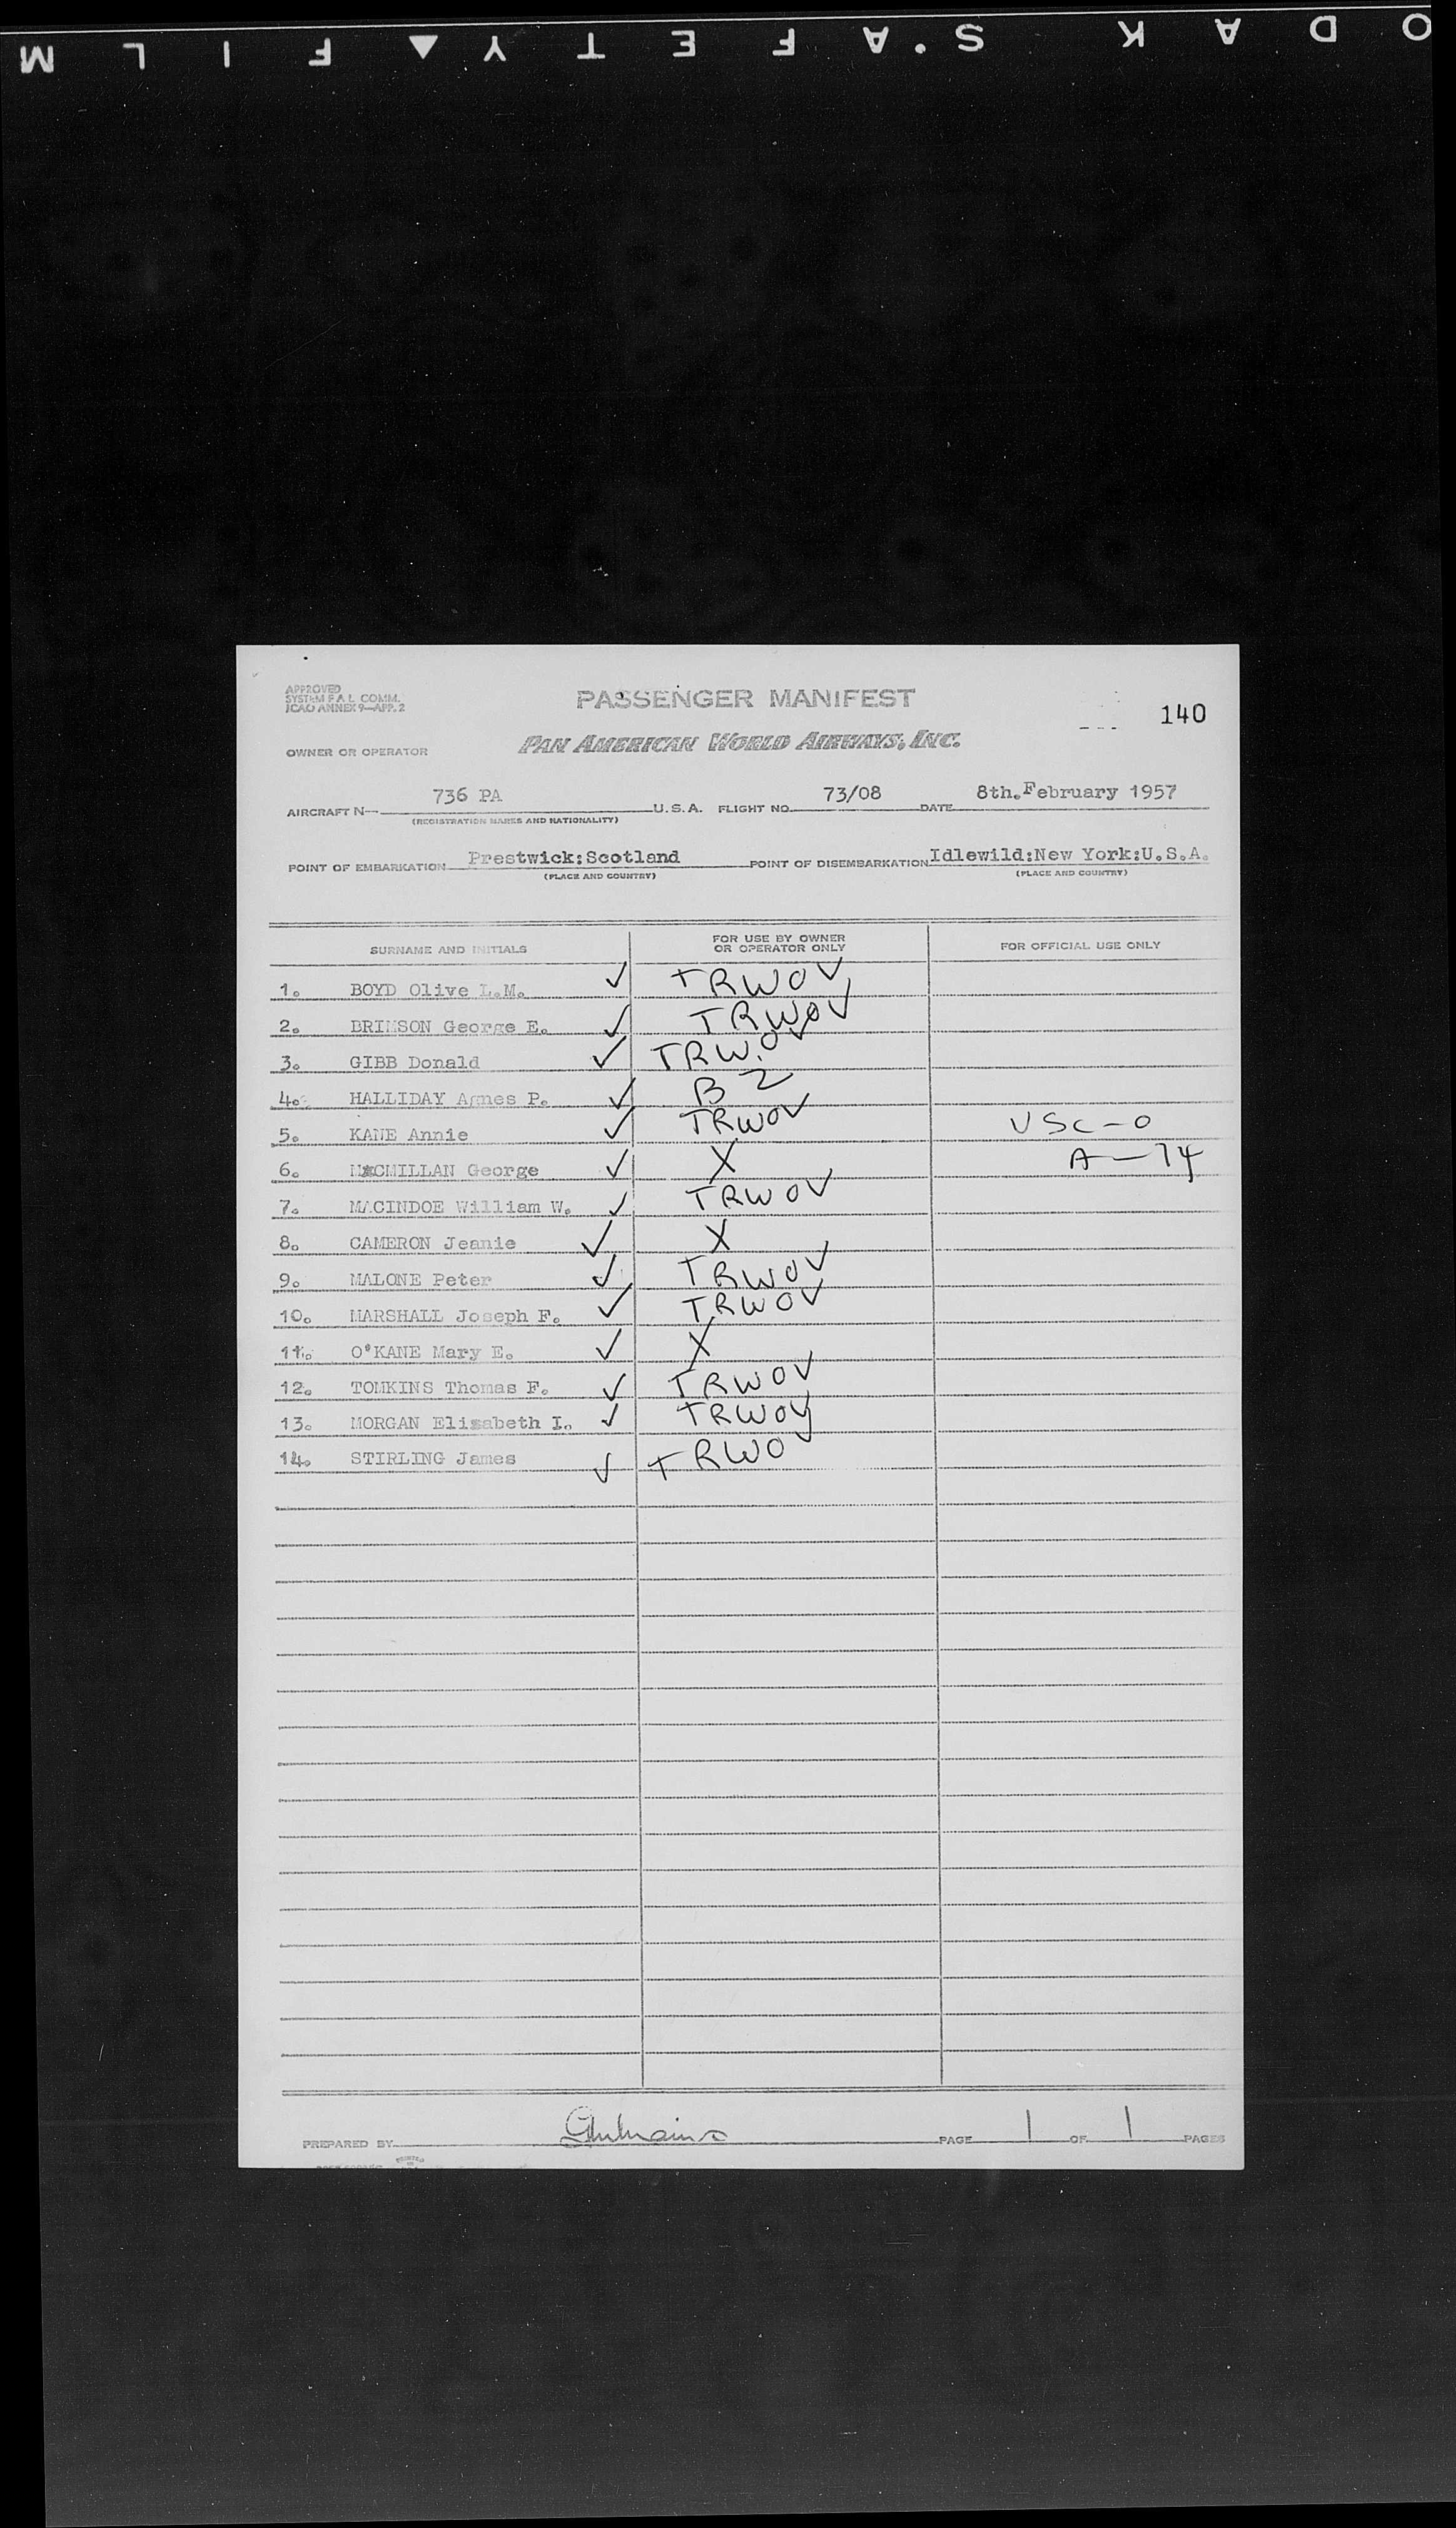 KODAK SAFETY FILM
APPROVED
SYSTEM F A L COMM.
ICAO ANNEX 9—APP. 2
PASSENGER MANIFEST
140
OWNER OR OPERATOR
PAN AMERICAN WORLD AIRWAYS, INC.
AIRCRAFT N— 736 PA U.S.A. FLIGHT NO. 73/08 DATE 8th.February 1957
(REGISTRATION MARKS AND NATIONALITY)
POINT OF EMBARKATION Prestwick:Scotland POINT OF DISEMBARKATION Idlewild:New York:U.S.A.
(PLACE AND COUNTRY) (PLACE AND COUNTRY)
SURNAME AND INITIALS FOR USE BY OWNER OR OPERATOR ONLY FOR OFFICIAL USE ONLY
1. BOYD Olive L.M. ✓ TRWOV
2. BRIMSON George E. ✓ TRWOV
3. GIBB Donald ✓ TRW.OV
4. HALLIDAY Agnes P. ✓ B 2
5. KANE Annie ✓ TRWOV USC-0
6. MACMILLAN George ✓ X A-14
7. MACINDOE William W. ✓ TRWOV
8. CAMERON Jeanie ✓ X
9. MALONE Peter ✓ TRWOV
10. MARSHALL Joseph F. ✓ TRWOV
11. O'KANE Mary E. ✓ X
12. TOMKINS Thomas F. ✓ TRWOV
13. MORGAN Elisabeth I. ✓ TRWOV
14. STIRLING James ✓ TRWOV
PREPARED BY PAGE 1 OF 1 PAGES